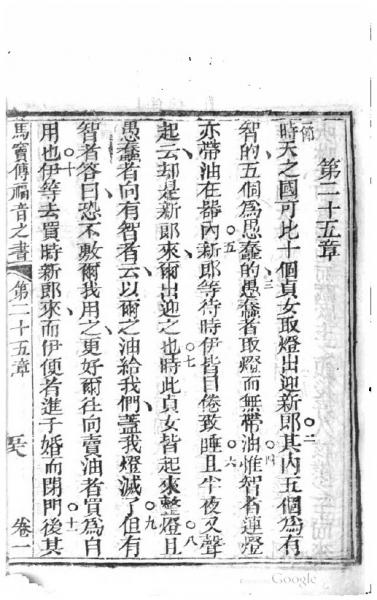 第二十五章
節時天之國可比十個貞女取燈出迎新郎二其內五個為有
智的五個為愚蠢的三愚蠢者取燈而無帶油四惟智者連燈
亦帶油在器內五新郎等待時伊皆目倦致睡六且半夜又聲
起云却是新郎來爾出迎之也七時此貞女皆起來整燈八且
愚蠢者向有智者云以爾之油給我們蓋我燈滅了九但有
智者答曰恐不敷爾我用之更好爾往向賣油者買為自
用也十伊等去買時新郎來而伊便者進于婚而閉門十一後其
馬竇傳福音之書 第二十五章 卷一
Google